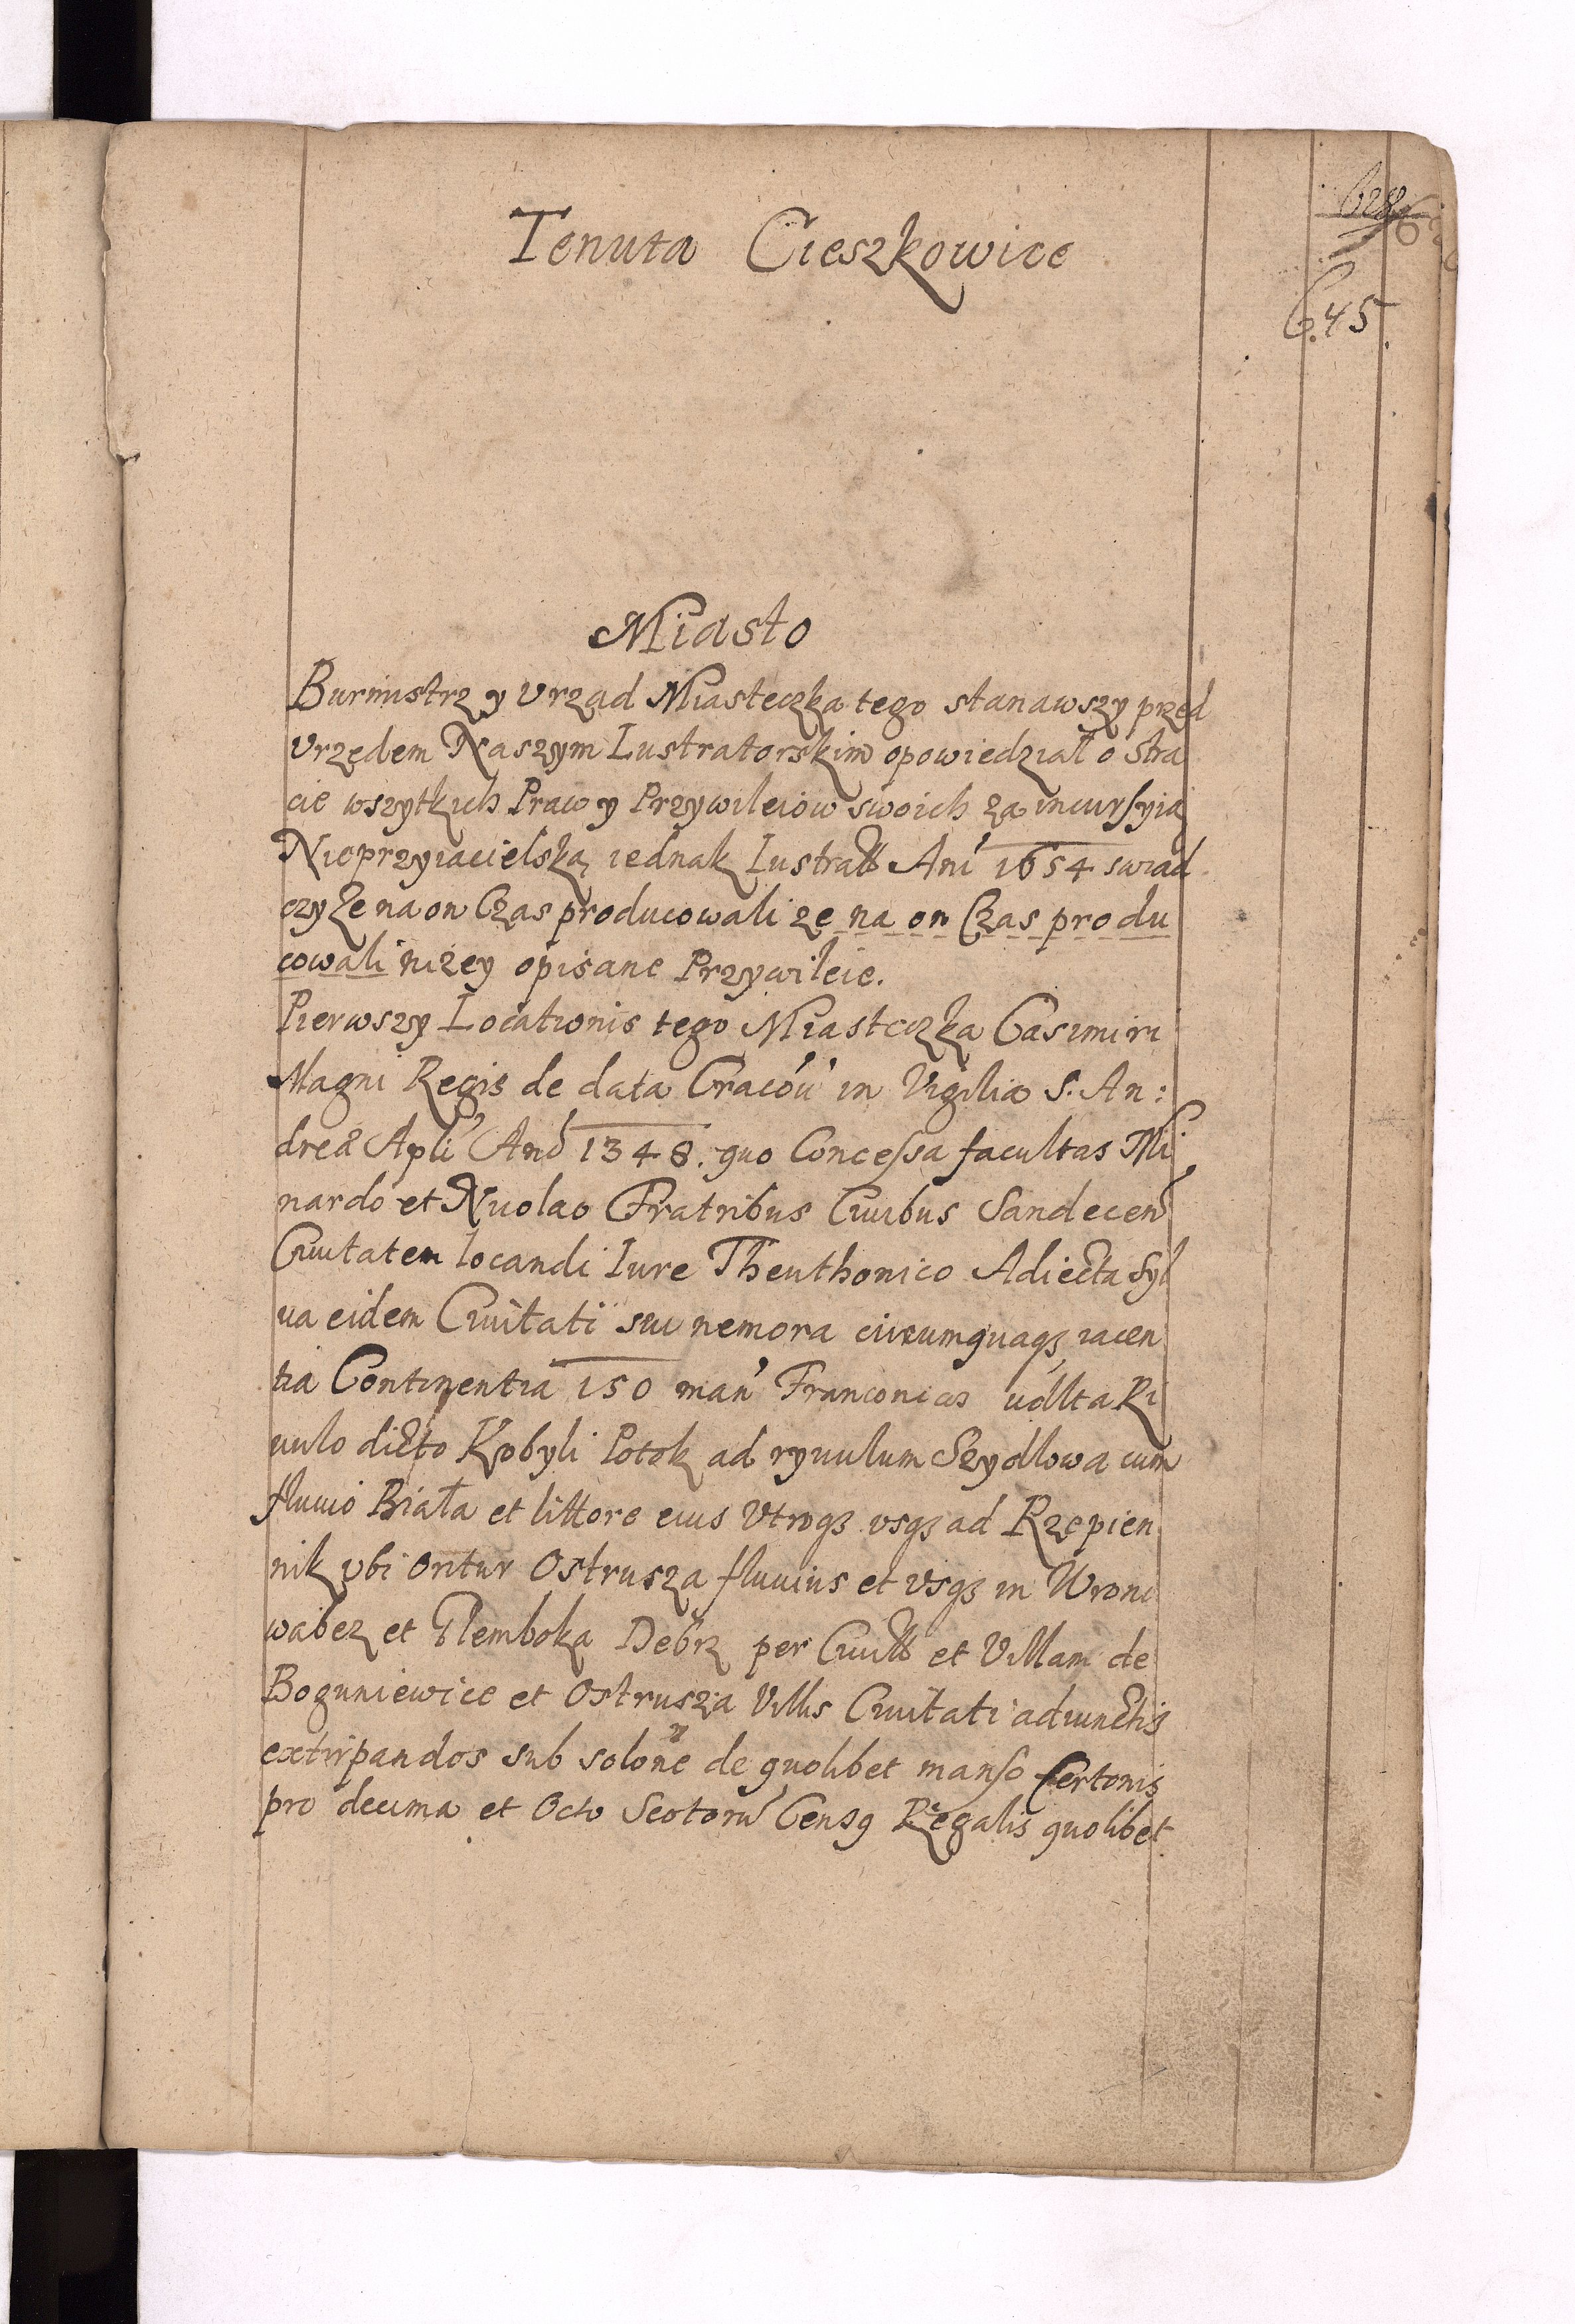 Tenuta Cieszkowice
628
645
Miasto
Burmistrz y Vrząd Miasteczka tego stanawszy przed
Vrzędem Naszym Lustratorskim opowiedział o Stra
cie wszytkich Praw y Przywileiow swoich za incursyią
Nieprzyiacielską, iednak Lustratt Ani 1654 swiad
czy że na on Czas producowali ze na on Czas produ
cowali niżey opisane Przywileie.
Pierwszy Locationis tego Miasteczka Casimiri
Magni Regis de data Cracou in Vigilia S. An:
dreæ Apli Ano 1348. quo Concessa facultas Mi
nardo et Nicolao Fratribus Ciuibus Sandecen
Ciuitatem locandi Iure Theuthonico Adiecta Syl
ua eidem Ciuitati siue nemora circumquaq iacen
tia Continentia 150 man Franconicos Ri
uulo dicto Kobyli Potok ad ryuulum Szydlowa cum
fluuio Biała et littore eius Vtroq vsq ad Rzepien
nik vbi oritur Ostrusza fluuius et vsq in Wroni
wabez et Glemboka Debrz per Ciuitt et Villam de
Boguniewice et Ostrusza Villis Ciuitati adiunctis
extirpandos sub solone de quolibet manso fertonis
pro decima et Octo Scotoru Censq Regalis quolibet